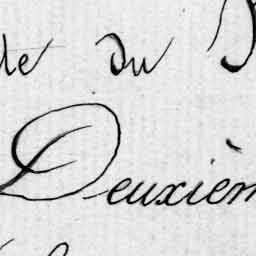 te du
Deuxièm